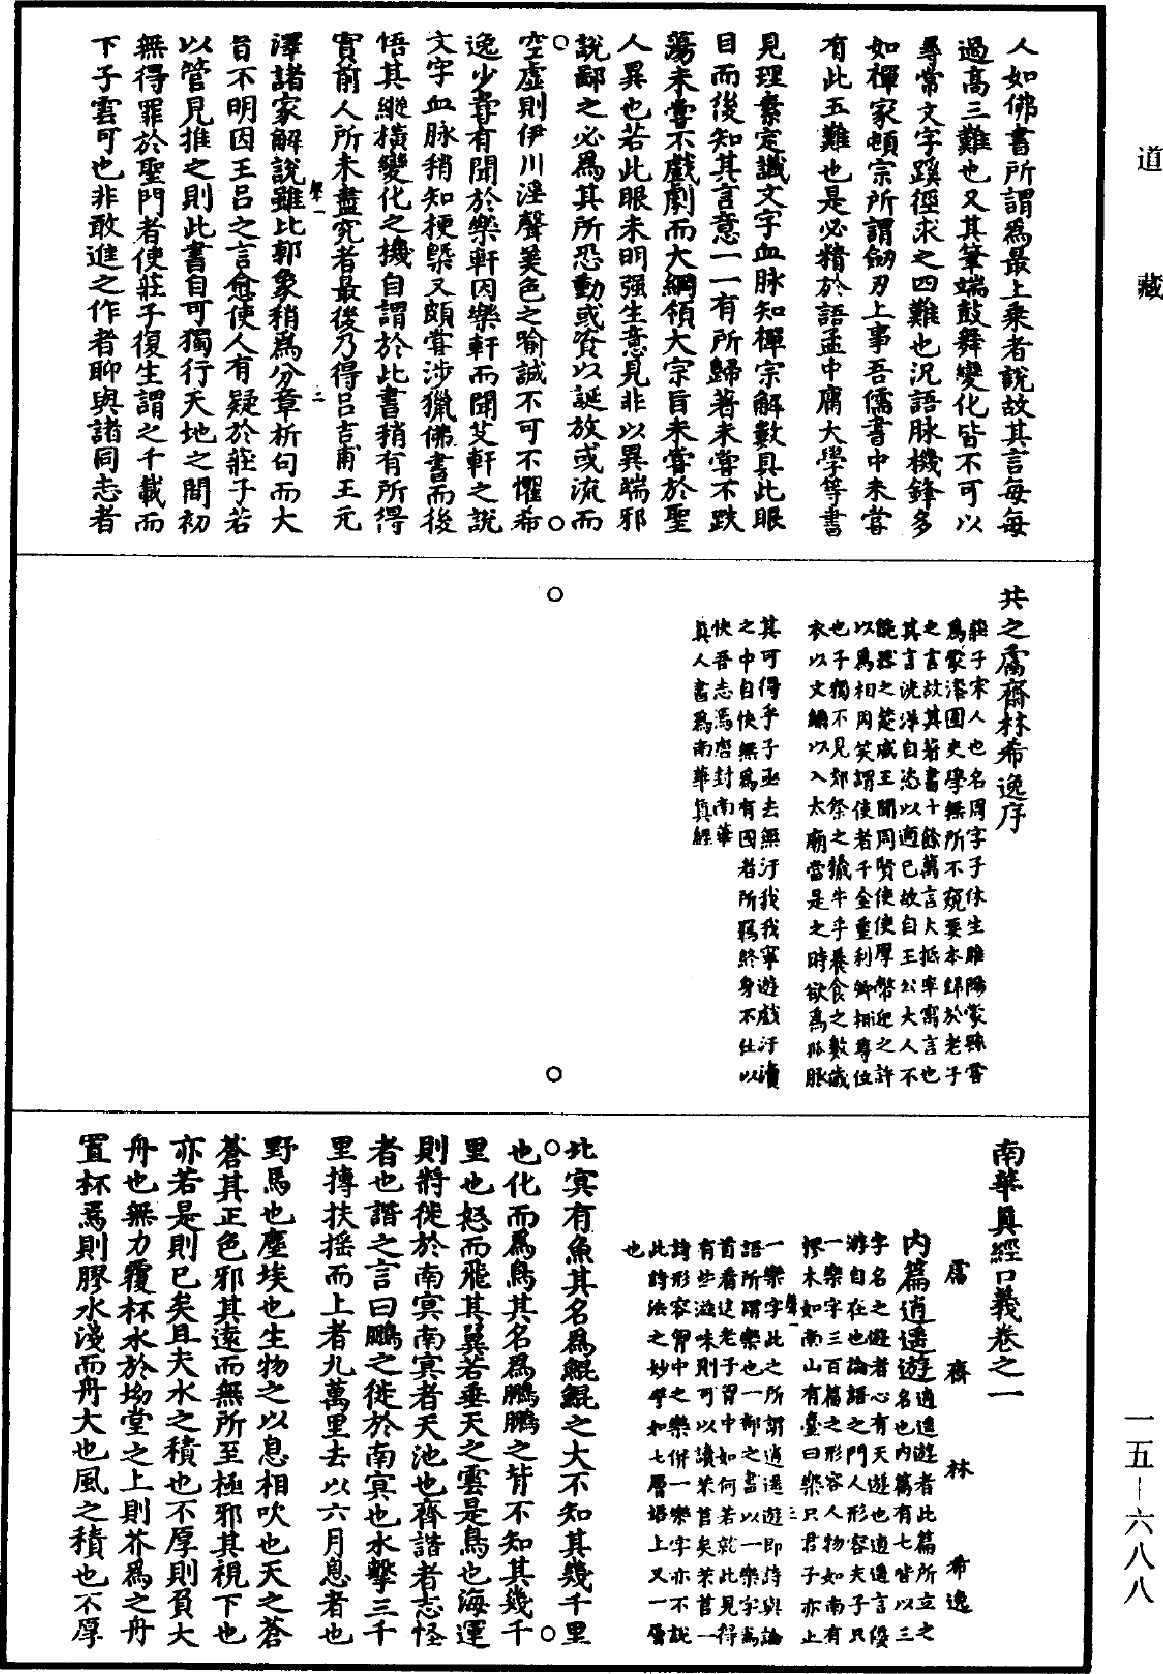 道藏
人如佛書所謂為最上乘者說故其言每每
過高三難也又其筆端鼓舞變化皆不可以
尋常文字蹊徑求之四難也況語脉機鋒多
如禪家頓宗所謂劒刃上事吾儒書中未嘗
有此五難也是必精於語孟中庸大學等書
見理素定識文字血脉知禪宗解數具此眼
目而後知其言意一一有所歸著未嘗不跌
蕩未嘗不戲劇而大綱領大宗旨未嘗於聖
人異也若此眼未明强生意見非以異端邪
說鄙之必為其所恐動或資以誕放或流而
空虛則伊川淫聲美色之喻誠不可不懼希
逸少嘗有聞於樂軒因樂軒而聞艾軒之說
文字血脉稍知梗槩又頗嘗涉獵佛書而後
悟其縱橫變化之機自謂於此書稍有所得
實前人所未盡究者最後乃得呂吉甫王元
澤諸家解說雖比郭象稍為分章析句而大
旨不明因王呂之言愈使人有疑於莊子若
以管見推之則此書自可獨行天地之間初
無得罪於聖門者使莊子復生謂之千載而
下子雲可也非敢進之作者聊與諸同志者
共之鬳齋林希逸序
莊子宋人也名周字子休生睢陽蒙縣嘗
為蒙漆園吏學無所不窺要本歸於老子
之言故其著書十餘萬言大抵率寓言也
其言洸洋自恣以適己故自王公大人不
能器之楚威王聞周賢使使厚幣迎之許
以為相周笑謂使者千金重利卿相尊位
也子獨不見郊祭之犧牛乎養食之數歲
衣以文繡以入太廟當是之時欲為孤豚
其可得乎子亟去無汙我我寧遊戲汙瀆
之中自快無為有國者所羈終身不仕以
快吾志焉唐封南華
真人書為南華真經
南華真經口義卷之一
鬳齋林希逸
內篇逍遙遊
逍遙遊者此篇所立之
名也內篇有七皆以三
字名之遊者心有天遊也逍遙言優
游自在也論語之門人形容夫子只
一樂字三百篇之形容人物如南有
樛木如南山有臺曰樂只君子亦止
一樂字此之所謂逍遙遊即詩與論
語所謂樂也一部之書以一樂字為
首看這老子胷中如何若就此見得
有些滋味則可以讀芣苢矣芣苢一
詩形容胷中之樂併一樂字亦不說
此詩法之妙譬如七層塔上又一層
也
北冥有魚其名為鯤鯤之大不知其幾千里
也化而為鳥其名為鵬鵬之背不知其幾千
里也怒而飛其翼若垂天之雲是鳥也海運
則將徙於南冥南冥者天池也齊諧者志怪
者也諧之言曰鵬之徙於南冥也水擊三千
里摶扶搖而上者九萬里去以六月息者也
野馬也塵埃也生物之以息相吹也天之蒼
蒼其正色邪其遠而無所至極邪其視下也
亦若是則已矣且夫水之積也不厚則負大
舟也無力覆杯水於坳堂之上則芥為之舟
置杯焉則膠水淺而舟大也風之積也不厚
一五-六八八